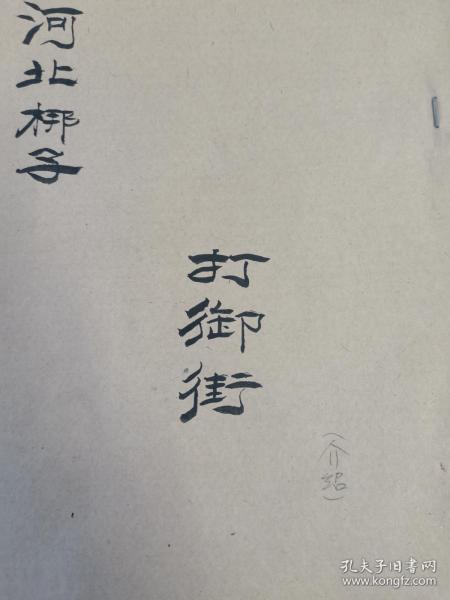 河北梆子
打御街
（介绍）
孔夫子旧书网
www.kongfz.com